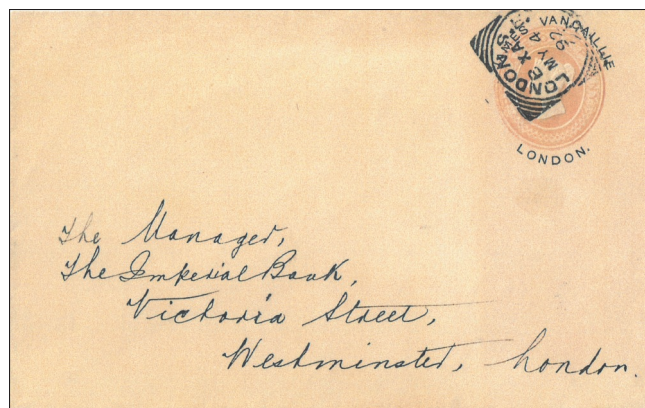 VANCAILLIE
LONDON
MY 4
92
LONDON.
The Manager,
The Imperial Bank,
Victoria Street,
Westminster, London.